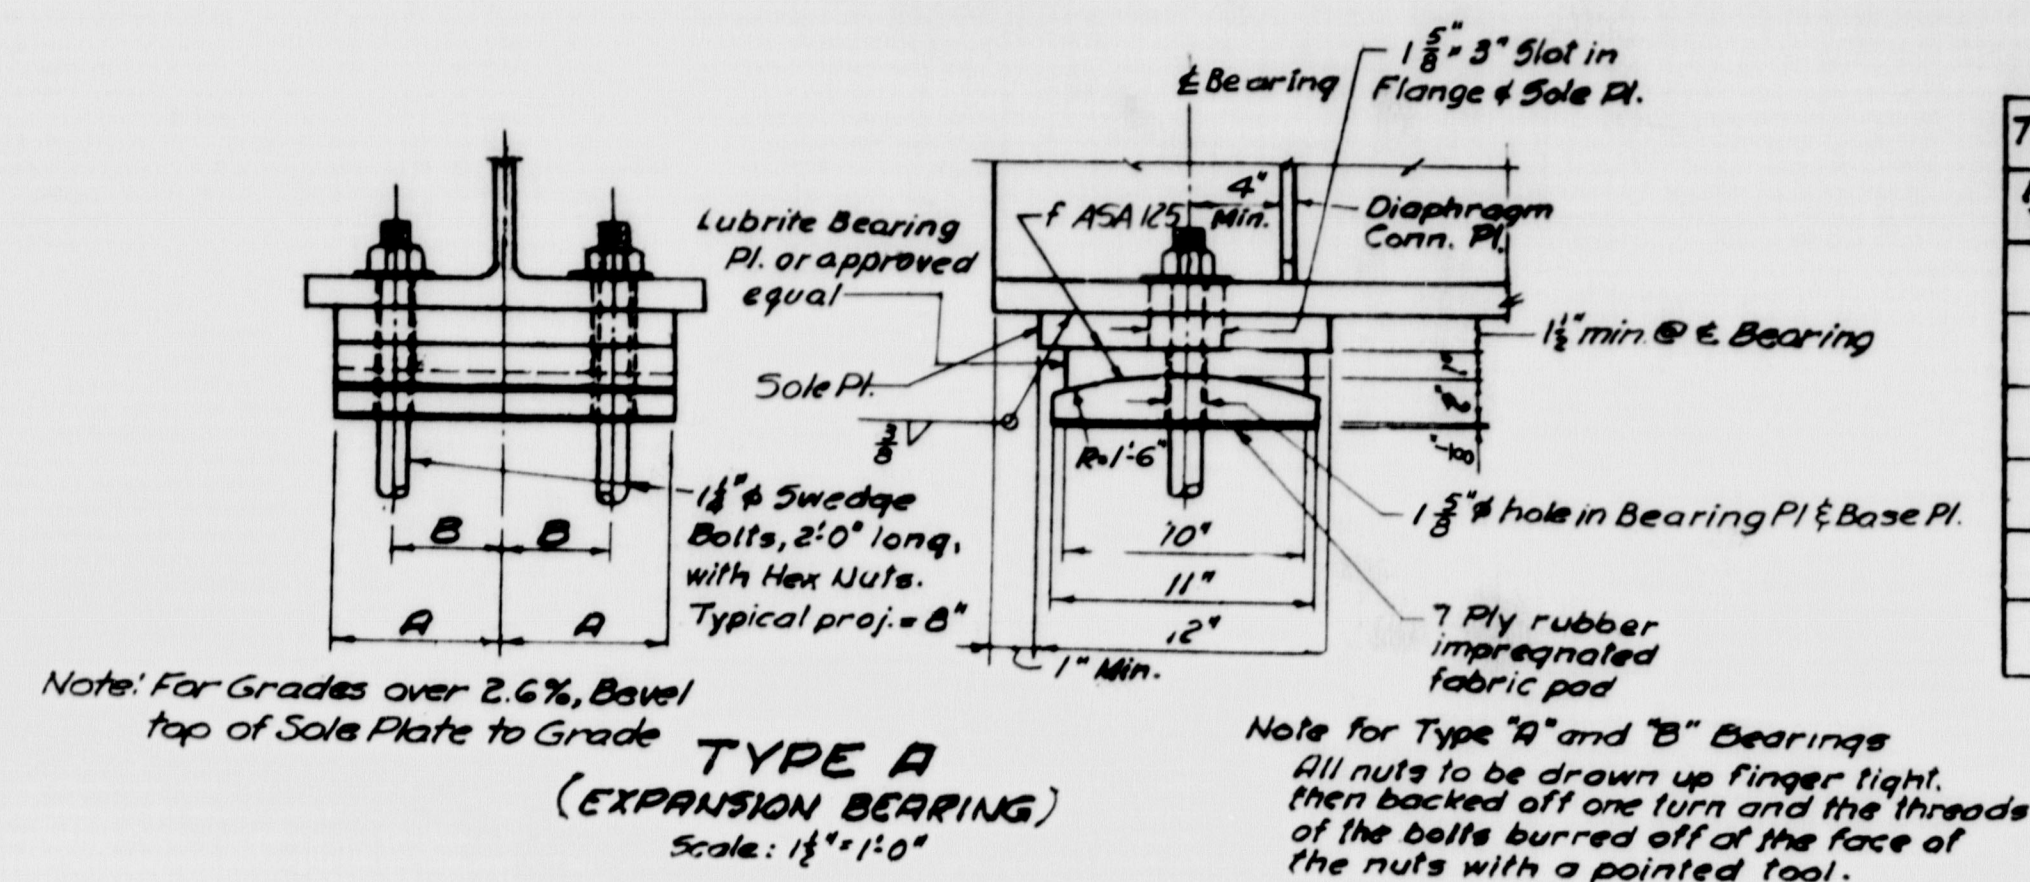 ℄ Bearing
1 5/8" × 3" Slot in
Flange & Sole Pl.
4"
Min.
f ASA 125
Diaphragm
Conn. Pl.
Lubrite Bearing
Pl. or approved
equal
Sole Pl.
1 1/2" min. @ ℄ Bearing
3/8
R=1'-6"
1/8"
1 1/4" ϕ Swedge
Bolts, 2'-0" long,
with Hex Nuts.
Typical proj. = 8"
1 5/8" ϕ hole in Bearing Pl & Base Pl.
B B
A A
10"
11"
12"
1" Min.
7 Ply rubber
impregnated
fabric pad
Note: For Grades over 2.6%, Bevel
top of Sole Plate to Grade
TYPE A
(EXPANSION BEARING)
Scale: 1 1/2" = 1'-0"
Note for Type "A" and "B" Bearings
All nuts to be drawn up finger tight.
then backed off one turn and the threads
of the bolts burred off at the face of
the nuts with a pointed tool.
7